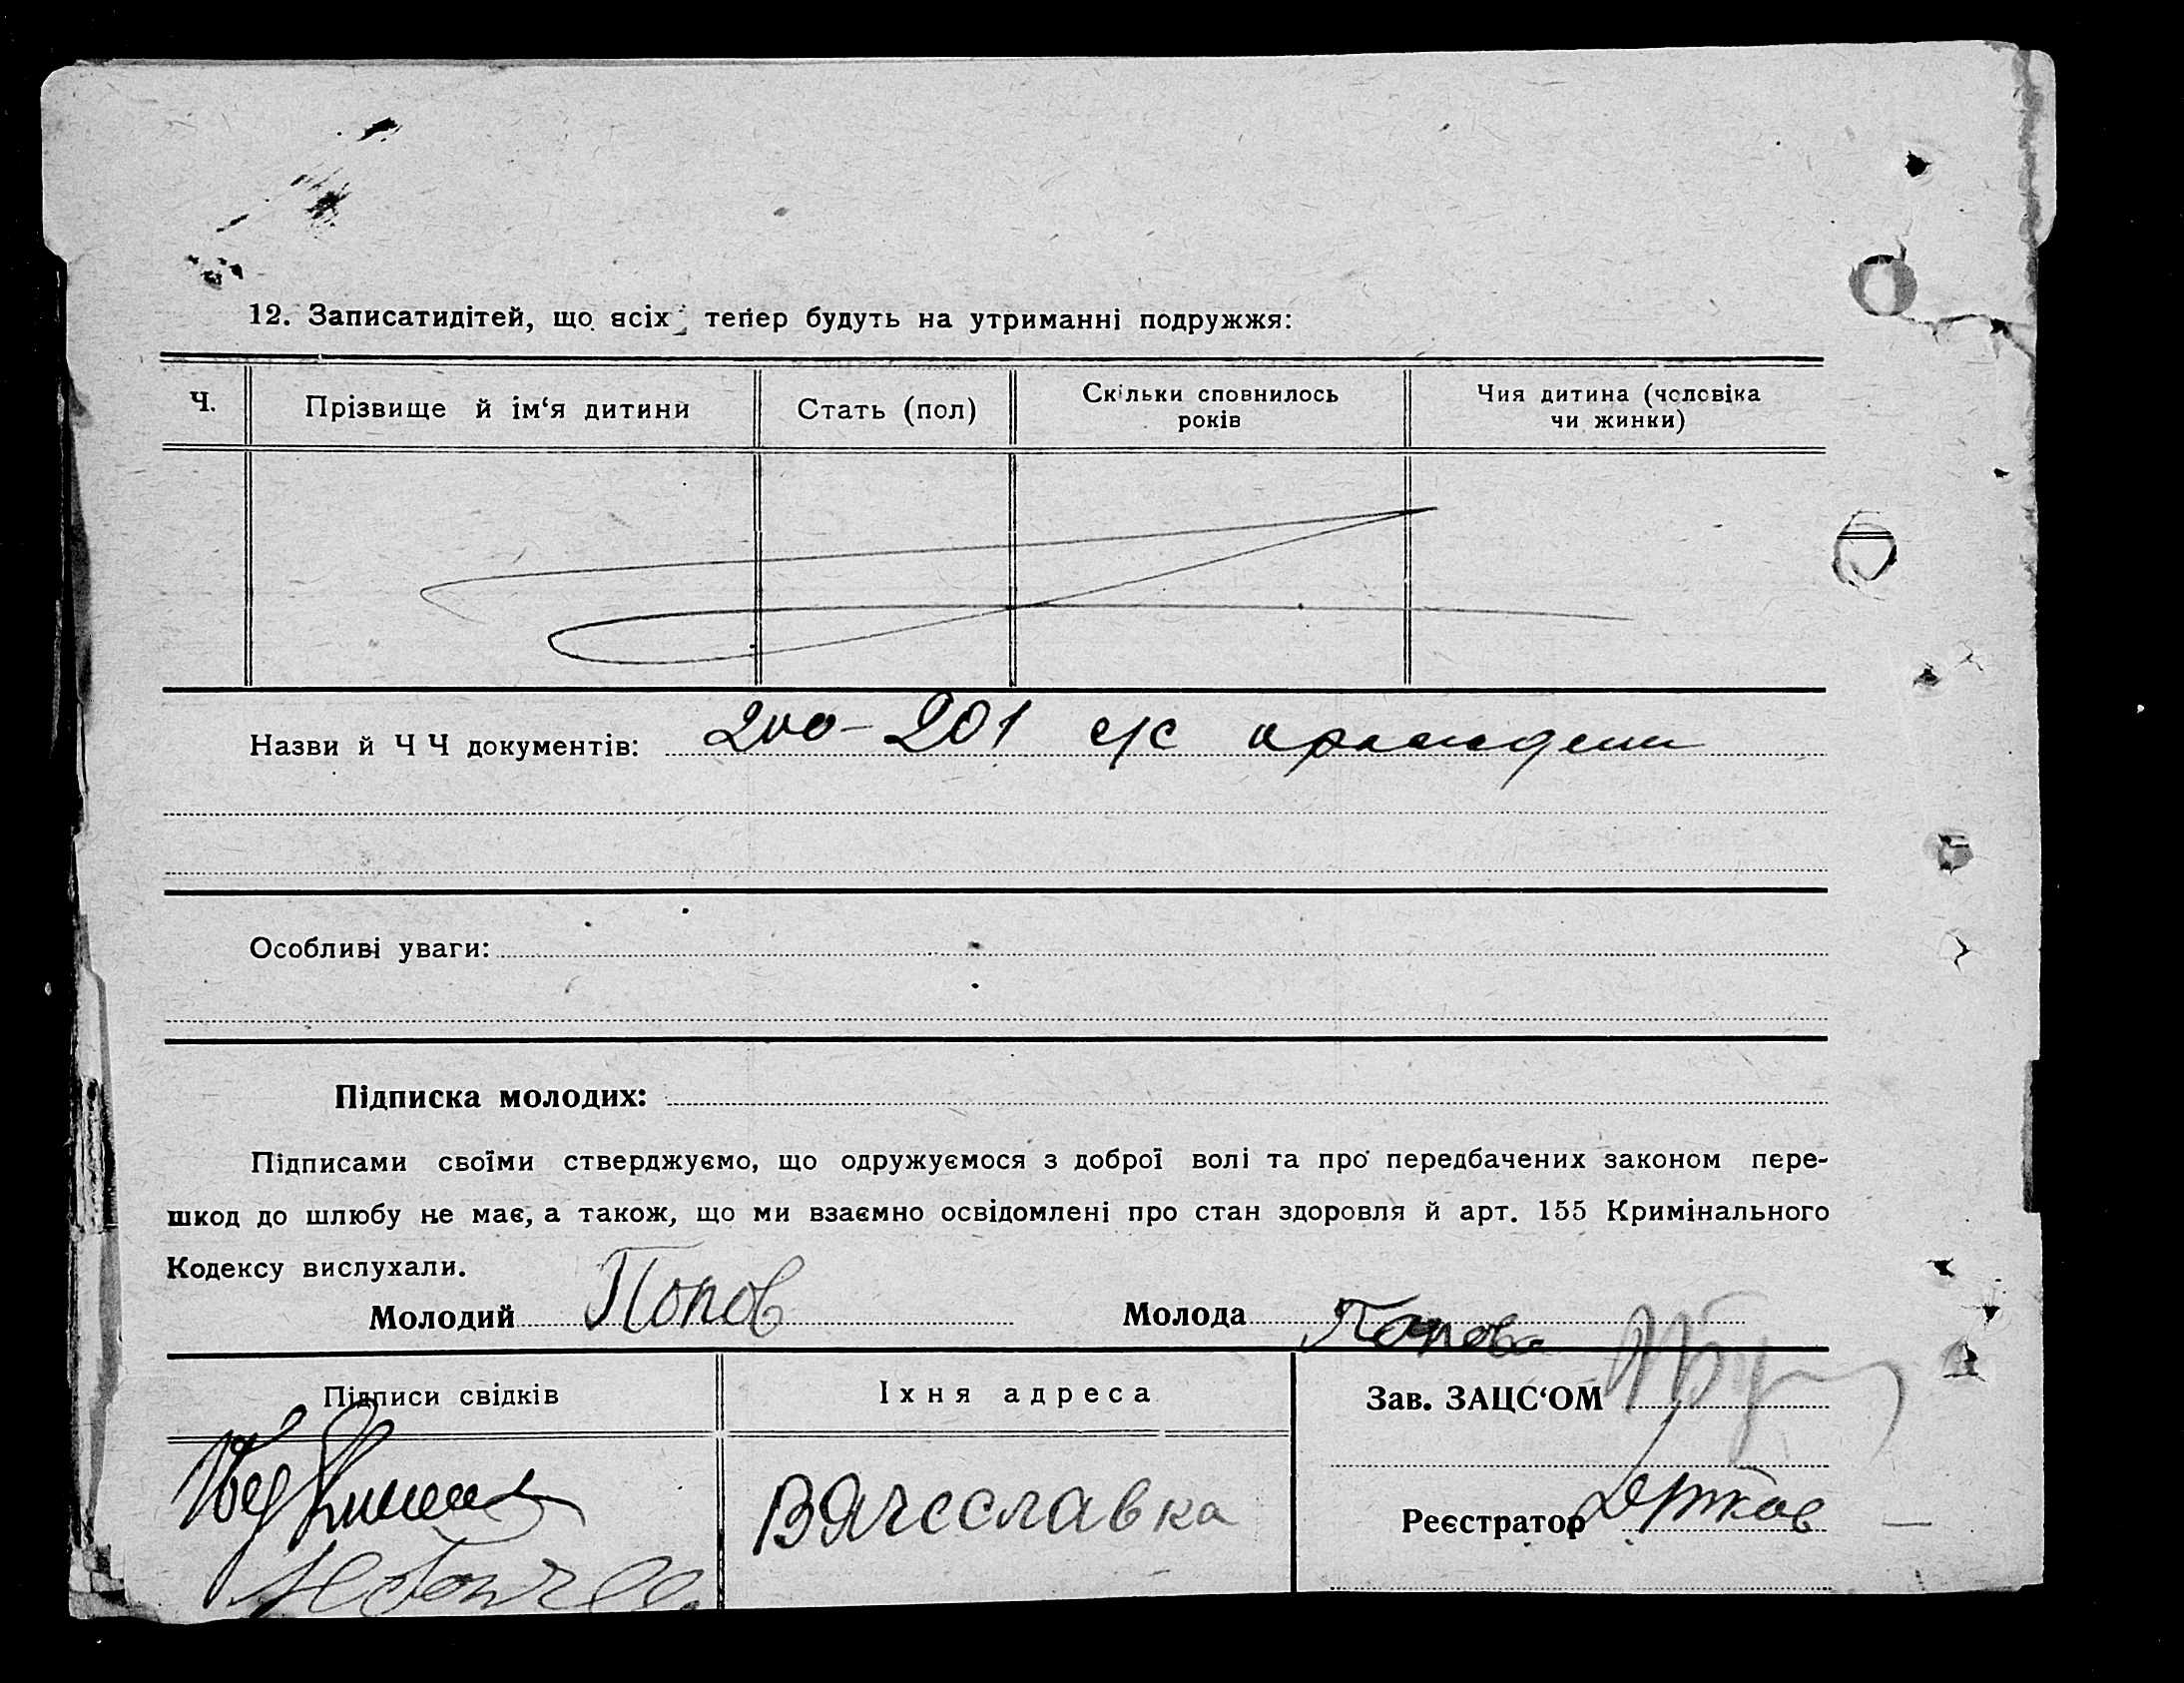 12. Записатидітей, що всіх тепер будуть на утриманні подружжя:
Ч.
Прізвище й ім‘я дитини
Стать (пол)
Скільки сповнилось
років
Чия дитина (чсловіка
чи жинки)
Назви й Ч Ч документів: 200-201 с/с
Особливі уваги:
Підписка молодих:
Підписами своїми стверджуємо, що одружуємося з доброї волі та про передбачених законом пере-
шкод до шлюбу не має, а також, що ми взаємно освідомлені про стан здоровля й арт. 155 Кримінального
Кодексу вислухали.
Молодий Попов Молода Попова
Підписи свідків
Іхня адреса
Зав. ЗАЦС‘ОМ
Вячеславка
Реєстратор